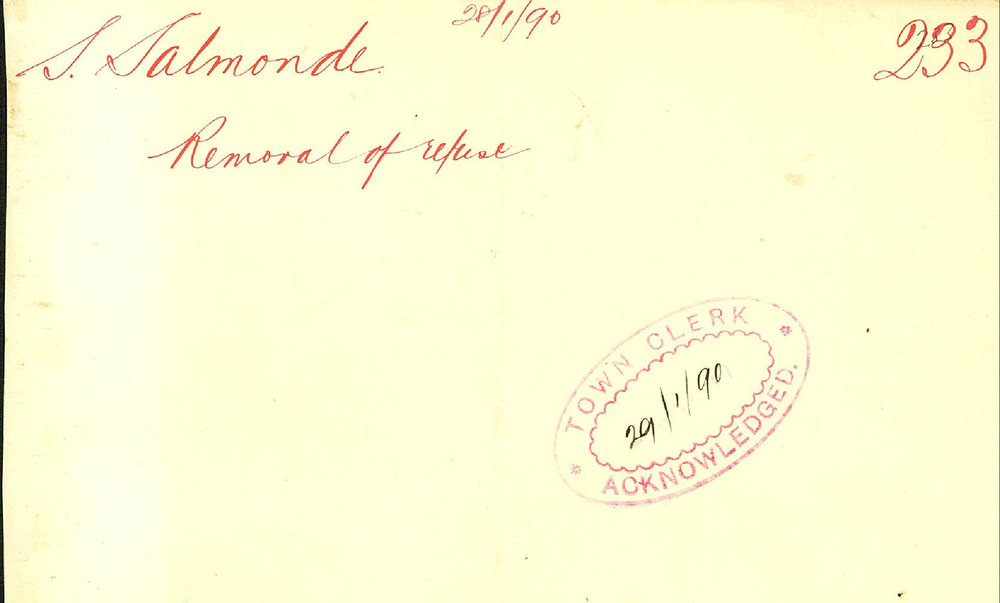 28/1/90
S. Salmonde.
233
Removal of refuse
TOWN CLERK
29/1/90
ACKNOWLEDGED.